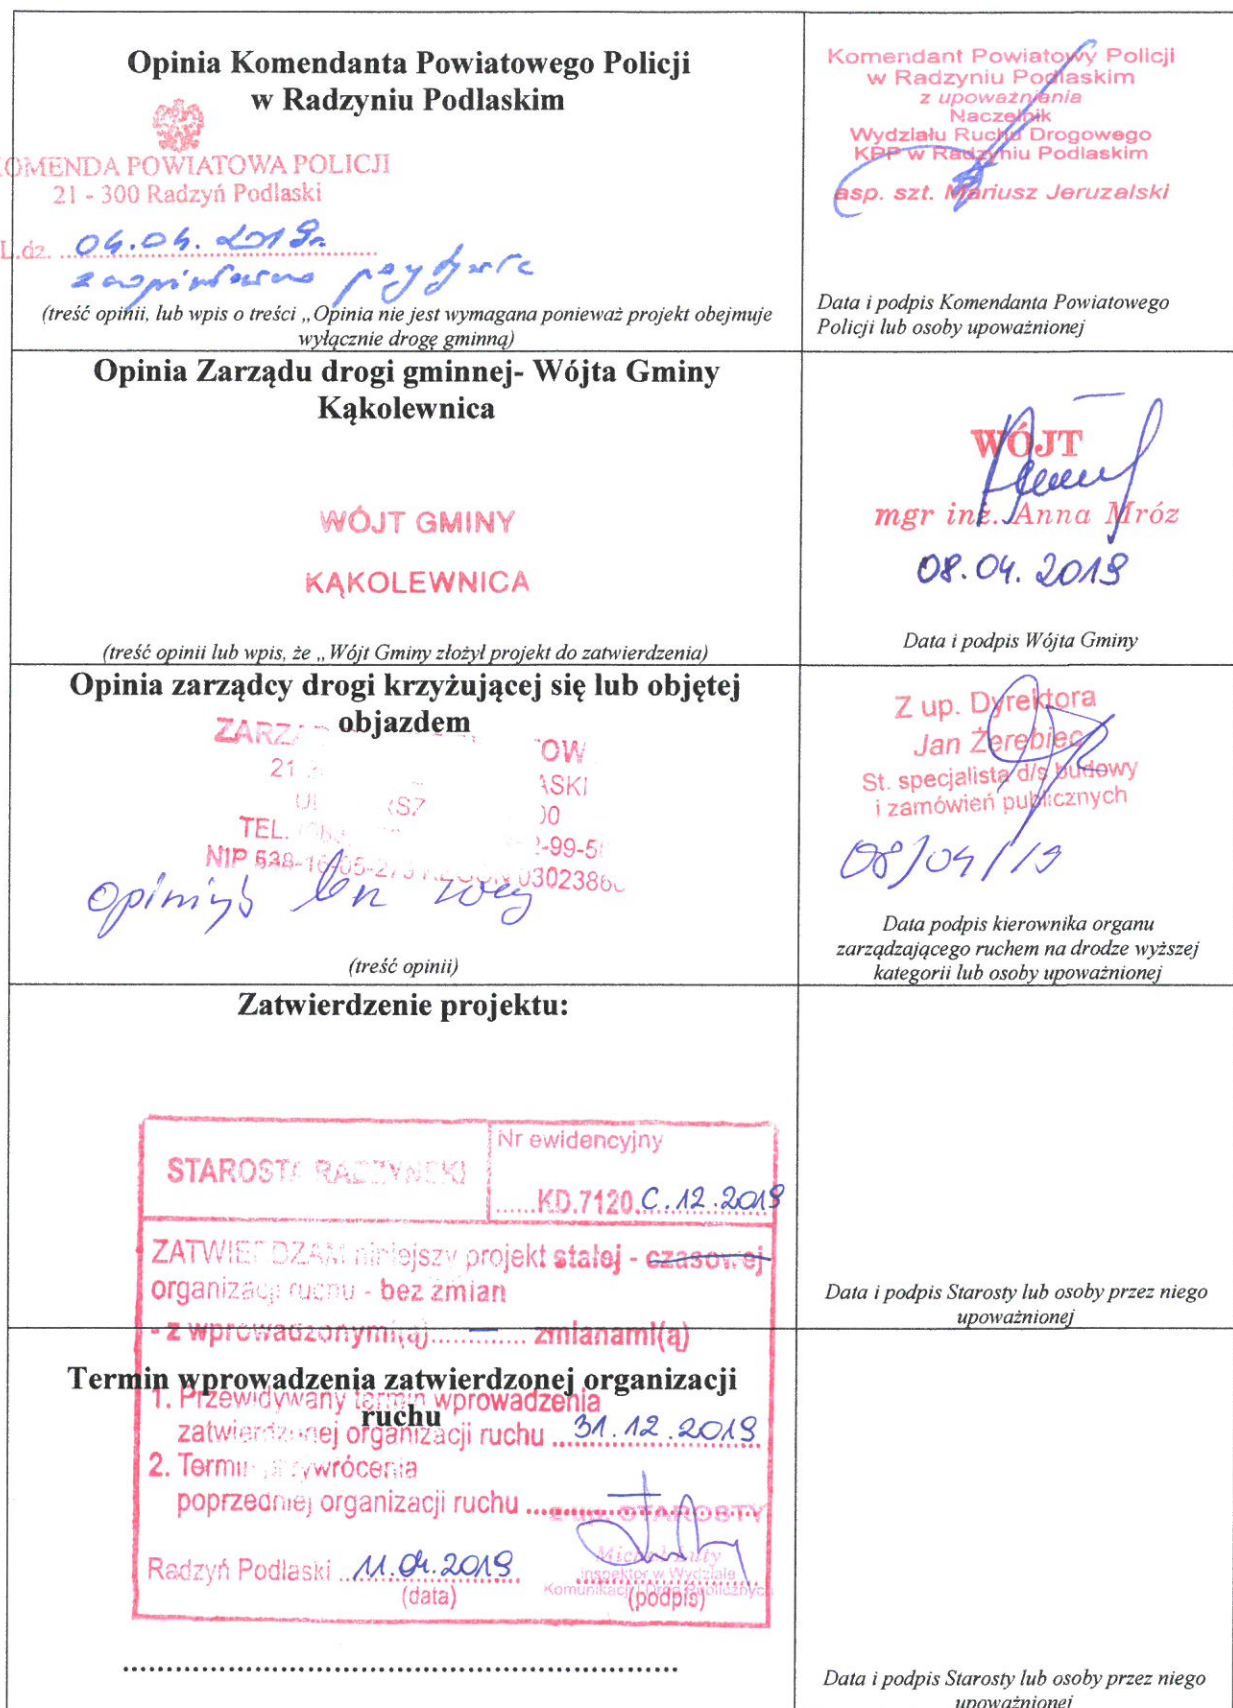 Opinia Komendanta Powiatowego Policji
w Radzyniu Podlaskim
OMENDA POWIATOWA POLICJI
21 - 300 Radzyń Podlaski
L.dz. 04.04.2019r.
zaopiniowano pozytywnie
(treść opinii, lub wpis o treści „Opinia nie jest wymagana ponieważ projekt obejmuje
wyłącznie drogę gminną)
Komendant Powiatowy Policji
w Radzyniu Podlaskim
z upoważnienia
Naczelnik
Wydziału Ruchu Drogowego
KPP w Radzyniu Podlaskim
asp. szt. Mariusz Jeruzalski
Data i podpis Komendanta Powiatowego
Policji lub osoby upoważnionej
Opinia Zarządu drogi gminnej- Wójta Gminy
Kąkolewnica
WÓJT GMINY
KĄKOLEWNICA
(treść opinii lub wpis, że „ Wójt Gminy złożył projekt do zatwierdzenia)
WÓJT
mgr inż. Anna Mróz
08.04.2019
Data i podpis Wójta Gminy
Opinia zarządcy drogi krzyżującej się lub objętej
objazdem
21
TEL.
-99-5
NIP 538-16-05-273
opiniuję bez uwag
(treść opinii)
Z up. Dyrektora
Jan Żerebiec
St. specjalista d/s budowy
i zamówień publicznych
08/04/19
Data podpis kierownika organu
zarządzającego ruchem na drodze wyższej
kategorii lub osoby upoważnionej
Zatwierdzenie projektu:
STAROSTA RADZYŃSKI
Nr ewidencyjny
......KD.7120.C.12.2019
ZATWIERDZAM niniejszy projekt stałej - czasowej
organizacji ruchu - bez zmian
- z wprowadzonymi(ą)............ zmianami(ą)
Data i podpis Starosty lub osoby przez niego
upoważnionej
Termin wprowadzenia zatwierdzonej organizacji
ruchu
1. Przewidywany termin wprowadzenia
zatwierdzonej organizacji ruchu ...31.12.2019
2. Termin przywrócenia
poprzedniej organizacji ruchu ........
z up. STAROSTY
Michał Luty
inspektor w Wydziale
Komunikacji i Dróg Publicznych
Radzyń Podlaski ..11.04.2019
(data)
(podpis)
Data i podpis Starosty lub osoby przez niego
upoważnionej